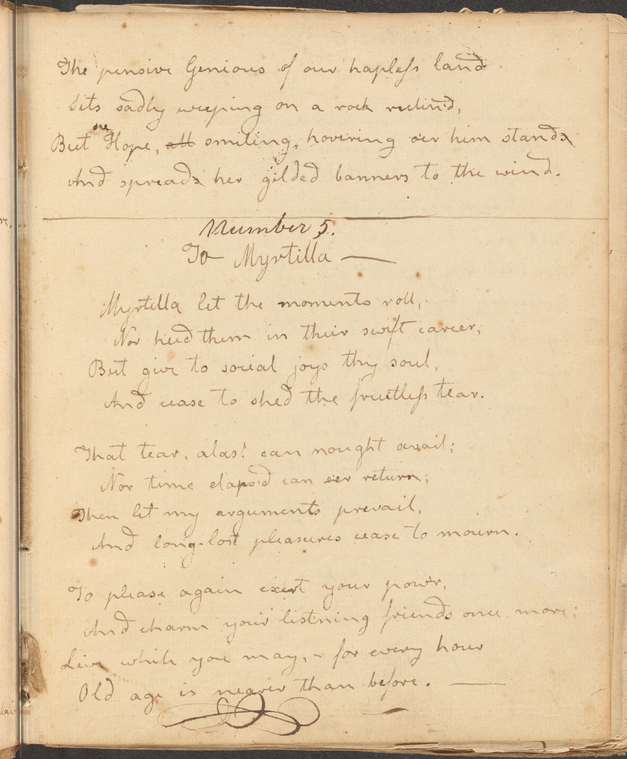 The pensive Genious of our hapless land
Sits sadly weeping on a rock reclin'd,
But Hope, smiling, hovering o'er him stands
And spreads her gilded banners to the wind.
Number 5.
To Myrtilla —
Myrtilla let the moments roll,
Nor heed them in their swift career,
But give to social joys thy soul,
And cease to shed the fruitless tear.
That tear, alas! can nought avail;
Nor time elaps'd can e'er return;
Then let my arguments prevail,
And long-lost pleasures cease to mourn.
To please again exert your pow'r,
And charm your list'ning friends once more;
Live while you may, for every hour
Old age is nearer than before. —